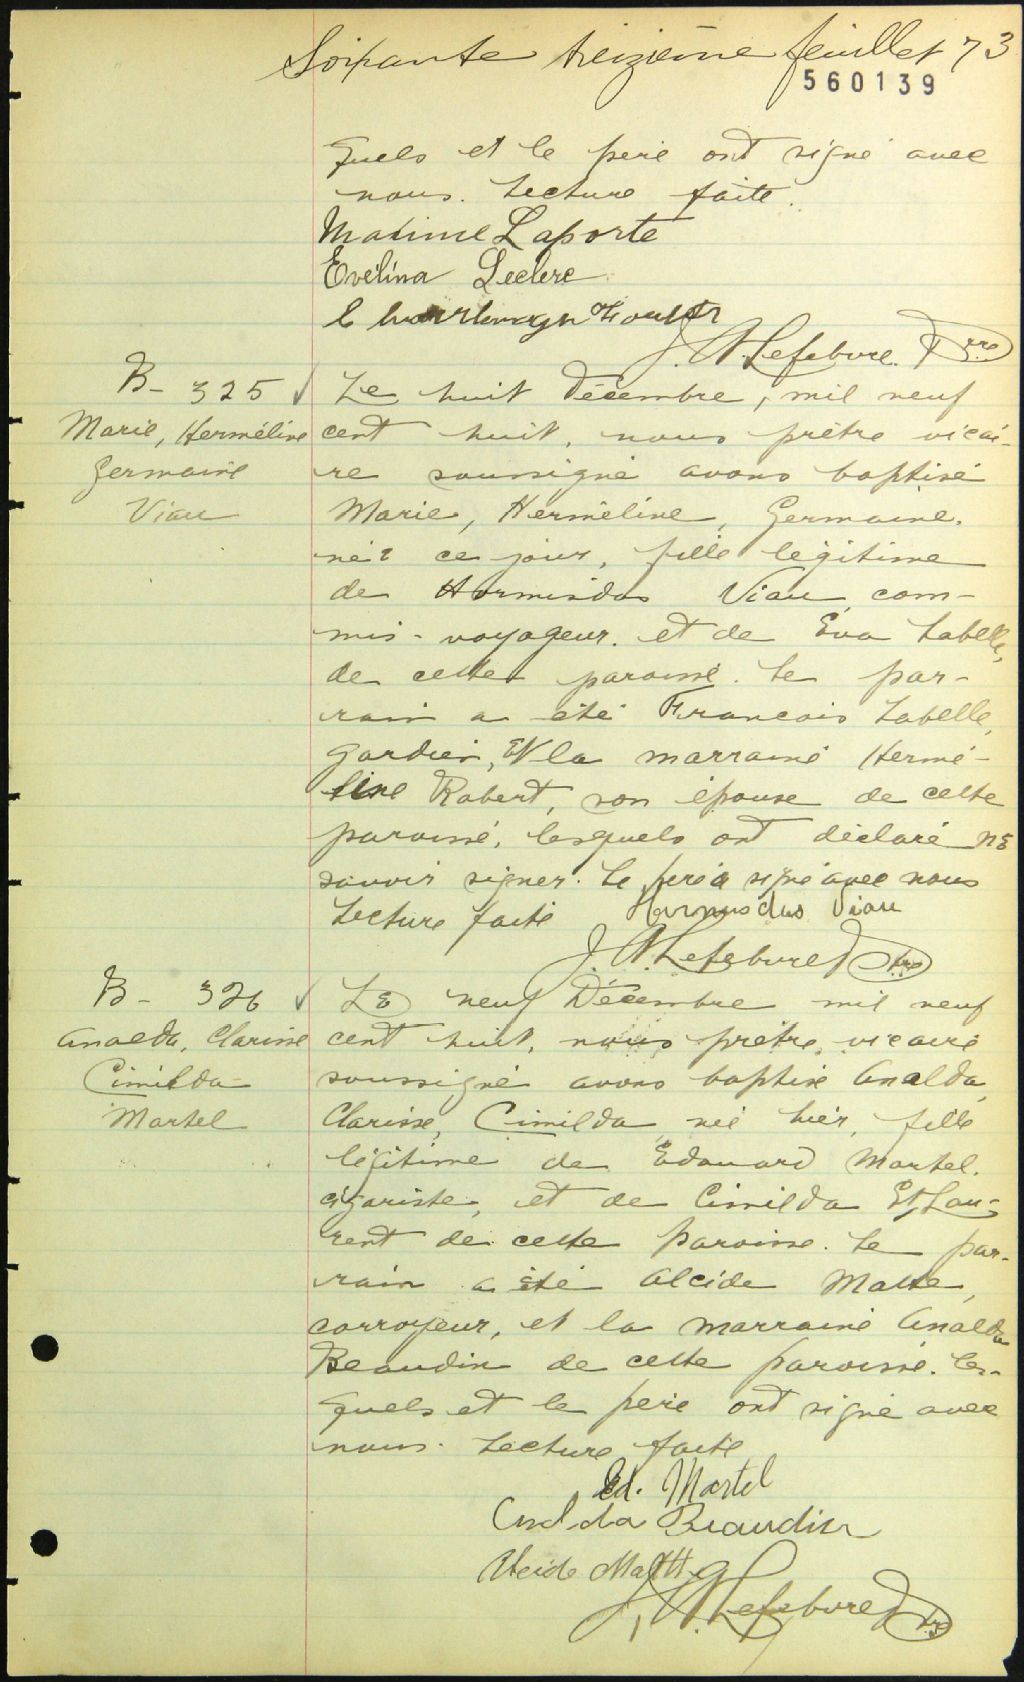 Soixante treizième feuillet 73
560139
quels et le père ont signé avec
nous. Lecture faite.
Maxime Laporte
Evélina Leclerc
J. A. Lefebvre. Ptre
B- 325
Marie, Herméline
Germaine
Viau
Le huit Décembre, mil neuf
cent huit, nous prêtre vicai-
re soussigné avons baptisé
Marie, Herméline, Germaine,
née ce jour, fille légitime
de Hormisdas Viau, com-
mis-voyageur. et de Éva Labelle,
de cette paroisse. Le par-
rain a été Francois Labelle,
gardien, et la marraine Hermé-
line Robert, son épouse de cette
paroisse, lesquels ont déclaré ne
savoir signer. Le père a signé avec nous
Lecture faite
Hormisdas Viau
J. A. Lefebvre Ptre
B- 326
Analda, Clarisse
Cimilda
Martel
Le neuf Décembre mil neuf
cent huit, nous prêtre, vicaire
soussigné avons baptisé Analda,
Clarisse, Cimilda, née hier, fille
légitime de Edouard Martel.
cigariste, et de Cimilda St, Lau-
rent de cette paroisse. Le par-
rain a été Alcide Matte,
corroyeur, et la marraine Analda
Beaudin de cette paroisse. les-
quels et le père ont signé avec
nous. Lecture faite
Ed. Martel
Analda Beaudin
Alcide Matte
J. A. Lefebvre Ptre